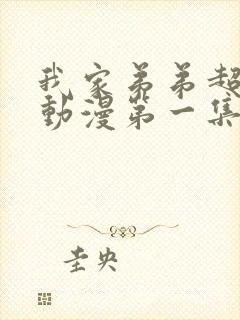 我家弟弟超
動漫第一集
圭央